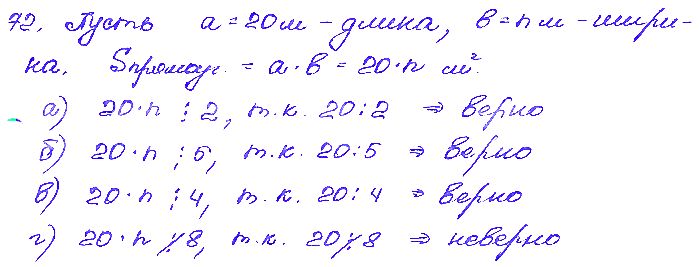 72. Пусть a = 20 м – длина, b = n м – шири-
на. Sпрямоуг. = a · b = 20 · n м².
а) 20 · n ⋮ 2, т.к. 20 ⋮ 2 ⇒ верно
б) 20 · n ⋮ 5, т.к. 20 ⋮ 5 ⇒ верно
в) 20 · n ⋮ 4, т.к. 20 ⋮ 4 ⇒ верно
г) 20 · n ⋮̸ 8, т.к. 20 ⋮̸ 8 ⇒ неверно